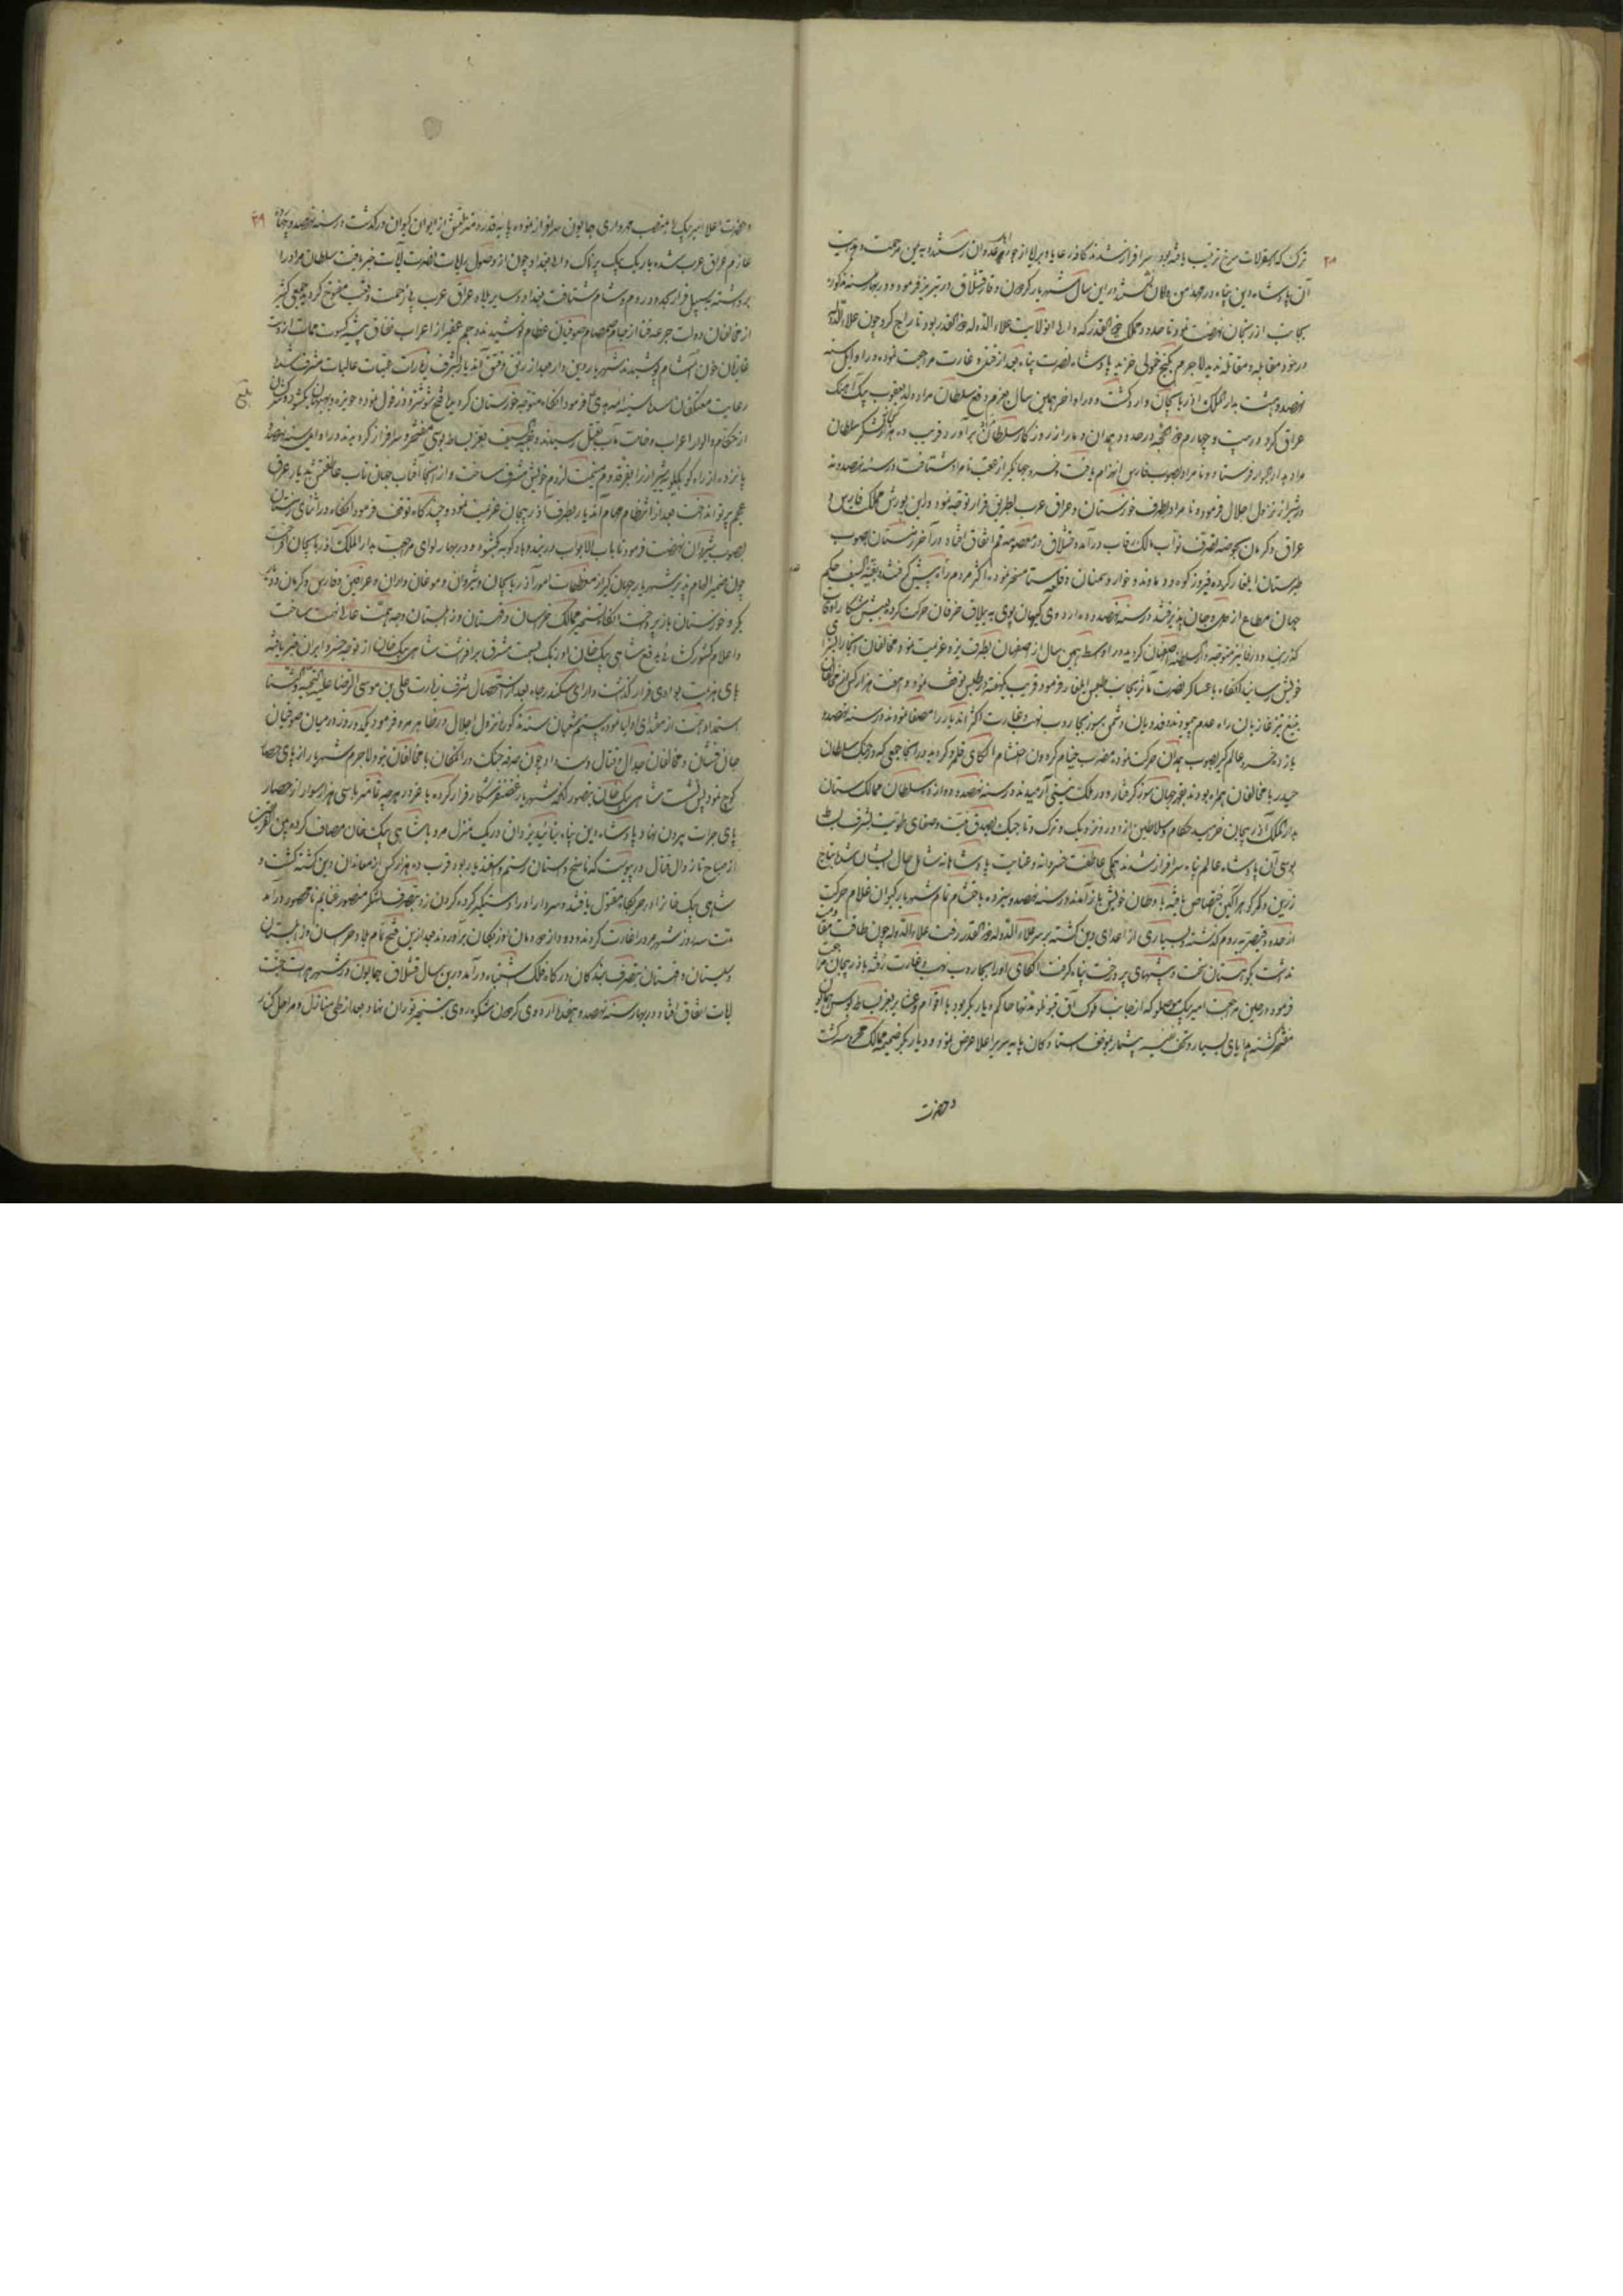 ترک که بسقرلات سرخ ترتیب یافته بود سرافراز شدند کافه رعایا و برایا از جور اهل عدوان رستند و به یمن مرحمت و حمایت
آن پادشاه دین پناه در مهد امن و امان درین سال شهریار گردون وقار قشلاق در تبریز فرمود و در بهار سنه مذکوره
بجانب ارزنجان نهضت نمود تا حدود مملکت ذو القدر که والی آنولایت علاء الدوله ذو القدر بود تاراج کرد چون علاء الدوله
در خود مقابله و مقاتله ندید لاجرم بکنج خمولی خزید پادشاه نصرت پناه بعد از قتل و غارت مراجعت نموده در اوایل سنه
نهصد و هشت بدار الملک آذربایجان وارد گشت و در اواخر همین سال بعزم دفع سلطان مراد ولد یعقوب بیک آهنگ
عراق کرد در بیست و چهارم ذی الحجه در حدود همدان دمار از روزگار سلطان برآورد قریب ده هزار کس از لشکر سلطان
مراد بدار البوار فرستاد و نامراد بصوب فارس انهزام یافت و خسرو جهانگیر از عقب نامراد شتافت در سنه نهصد و نه
در شیراز نزول اجلال فرمود و نامراد بطرف خوزستان و عراق عرب بطریق فرار توجه نمود و درین یورش ممالک فارس و
عراق و کرمان بحوضه تصرف نواب مالک رقاب درآمد و قشلاق در معصومه قم اتفاق افتاد و در آخر زمستان بصوب
طبرستان ایلغار کرده فیروزکوه و دماوند و خوار و سمنان و قلعه استا مسخر نمود و اکثر مردم راه پیش گرفتند و بقیه السیف حکم
جهان مطاع از دل و جان پذیرفتند در سنه نهصد و ده اردوی کیهان پوی به ییلاق خرقان حرکت کرده بعیش شکار اوقات
گذرانید و در پاییز متوجه دار السلطنه اصفهان گردید در اواسط همین سال از اصفهان بطرف یزد عزیمت نمود مخالفان آنجا را بسزای
خویش رسانید آنگاه با عساکر نصرت مآثر بجانب طبس ایلغار فرمود قریب یکهفته در طبس توقف نمود و هفت هزار کس از مخالفان
بتیغ تیز غازیان راه عدم پیمودند و فدویان دشمن سوز بجاروب نهب و غارت اکثر آن دیار را مصفا نمودند در سنه نهصد و
یازده خسرو عالمگیر بصوب همدان حرکت نموده مضرب خیام گردون احتشام الکای قلمرو گردید در آنجا جمعی که در جنگ سلطان
حیدر با مخالفان همراه بودند بقهر جهانسوز گرفتار و در ملک نیستی آرمیدند در سنه نهصد و دوازده سلطان ممالک ستان
بدار الملک آذربایجان خرامید حکام و سلاطین از دور و نزدیک و ترک و تاجیک بصدق نیت و صفای طویت بشرف بساط
بوسی آن پادشاه عالم پناه سرافراز شدند همگی عاطفت خسروانه و عنایت پادشاهانه شامل حال ایشان شد بتاج
زرین و کمر گوهر آگین اختصاص یافته باوطان خویش بازآمدند در سنه نهصد و سیزده باخشم تمام شهریار کیوان غلام حرکت
از حدود قیصریه روم گذشته و بسیاری از اعدای دین کشته بر سر علاء الدوله ذو القدر رفت علاء الدوله چون طاقت مقاومت
نداشت بکوهستان سخت و بیشهای پر درخت پناه گرفت الکای او را بجاروب نهب و غارت رفته بآذربایجان مراجعت
فرمود در حین مراجعت امیر بیک موصلو که از جانب ملوک آق قوینلو مدتها حاکم دیار بکر بود با اقوام و عشایر بعز بساط بوس همایون
مفتخر گشته هدایای بسیار و تحف نفیسه بیشمار بموقف ایستادگان پایه سریر اعلا عرض نمود و دیار بکر ضمیمه ممالک محروسه گشت
و حضرت
۳۹
و حضرت اعلا امیر بیک را بمنصب مهرداری همایون سرافراز نموده پایه قدر و منزلتش از ایوان کیوان درگذشت در سنه نهصد و چهارده
عازم عراق عرب شده باریک بیک پرناک والی بغداد چون از وصول رایات نصرت آیات خبر یافت سلطان مراد را
برداشته بسبیل فرار بحدود روم و شام شتافت بغداد و سایر بلاد عراق عرب بی زحمت و تعب مفتوح گردید جمعی کثیر
از مخالفان دولت جرعه فنا از جام صمصام صوفیان عظام نوشیدند و جم غفیر از اعراب نفاق پیشه کسوت ممات از دست
غازیان خون آشام پوشیدند شهریار دین دار بعد از رتق و فتق آن دیار بشرف زیارات عتبات عالیات مشرف شده
رعایت معتکفان سدة سنیه ائمه هدی فرمود آنگاه متوجه خوزستان گردید فتح شوشتر و دزفول نموده حویزه و بهبهان بگشود و کثیری
بلغ
از حکام و الوار اعراب وخامت مآب بقتل رسیدند و بقیه السیف بعز بساط بوسی مفتخر و سرافراز گردیدند در اوایل سنه نهصد و
پانزده از راه کوه کیلویه شیراز را بفر قدوم میمنت لزوم خویش مشرف ساخت و از آنجا آفتاب جهان تاب عاطفتش بدیار عراق
عجم پرتو انداخت بعد از انتظام مهام آن دیار بطرف آذربایجان عزیمت نمود و چندگاه توقف فرمود آنگاه در اثنای زمستان
بصوب شیروان نهضت فرمود تا باب الابواب دربند و بادکوبه گشود و در بهار لوای مراجعت بدار الملک آذربایجان افراخت
چون ضمیر الهام پذیر شهریار جهانگیر از معظمات امور آذربایجان و شیروان و موغان و اران و عراقین و فارس و کرمان و دیار
بکر و خوزستان باز پرداخت آنگاه تسخیر ممالک خراسان و قهستان و زابلستان وجهه همت عالی نهمت ساخت
و اعلام کشورگشائی بدفع شاهی بیک خان اوزبک بسمت مشرق برافراشت شاهی بیک خان از توجه خسرو ایران خبر یافته
پای هزیمت بوادی فرار گذاشت دارای سکندر جاه بعد از استحصال شرف زیارت علی بن موسی الرضا علیه التحیه و الثنا
استمداد همت از مقتدای اولیا نمود بیستم شعبان سنه مذکوره نزول اجلال در ظاهر مرو فرمود یکدو روز در میان صوفیان
جان فشان و مخالفان جدال و قتال دست داد چون صرفه جنگ در آن مکان با مخالفان نبود لاجرم شهریار از پای حصار
کوچ نمود پس نشست شاهی بیک خان بتصور آنکه شهریار غضنفر شکار فرار کرده با غرور هرچه تمامتر با سی هزار سوار از حصار
پای جرات بیرون نهاد پادشاه دین پناه بتائید یزدان در یک منزل مرو با شاهی بیک خان مصاف کرد بین الفریقین
از صباح تا زوال قتالی درپیوست که ناسخ داستان رستم و اسفندیار بود قرب ده هزار کس از معاندان دین کشته گشت و
شاهی بیک خان را در معرکه مقتول یافتند و سرداران او را دستگیر کرده گردن زدند تصرف لشکر منصور غنایم نامحصور درآمد
مدت سه روز شهر مرو را غارت کردند و دود از دودمان اوزبکان برآوردند بعد ازین فتح تمام بلاد خراسان و زابلستان
و سیستان و قهستان بتصرف بندگان درگاه فلک اشتباه درآمد درین سال قشلاق همایون در شهر هرات جنت
آیات اتفاق افتاد در بهار سنه نهصد و هفده اردوی گردون شکوه روی بتسخیر توران نهاد بعد از طی منازل و مراحل کنار